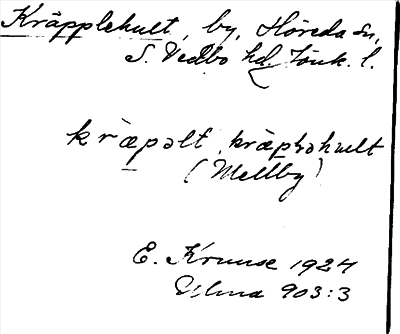 Kräpplehult, by, Höreda sn,
S. Vedbo hd. Jönk. l.
kräpəlt, kräpləhult
(Mellby)
E. Kruuse 1924
903:3